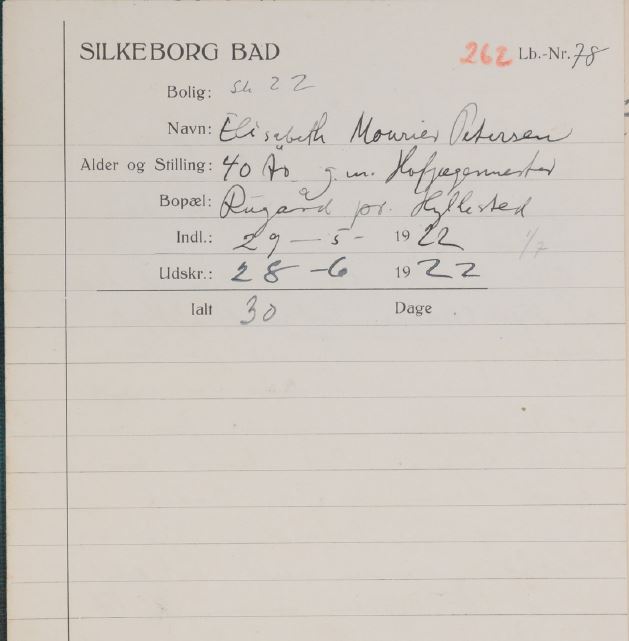 SILKEBORG BAD 262 Lb.-Nr. 78
Bolig: St 22
Navn: Elisabeth Mourier Petersen
Alder og Stilling: 40 År g. m. Hofjægermester
Bopæl: Rugård pr. Hyllested
Indl.: 29 - 5 - 1922 1/7
Udskr.: 28 - 6 1922
Ialt 30 Dage